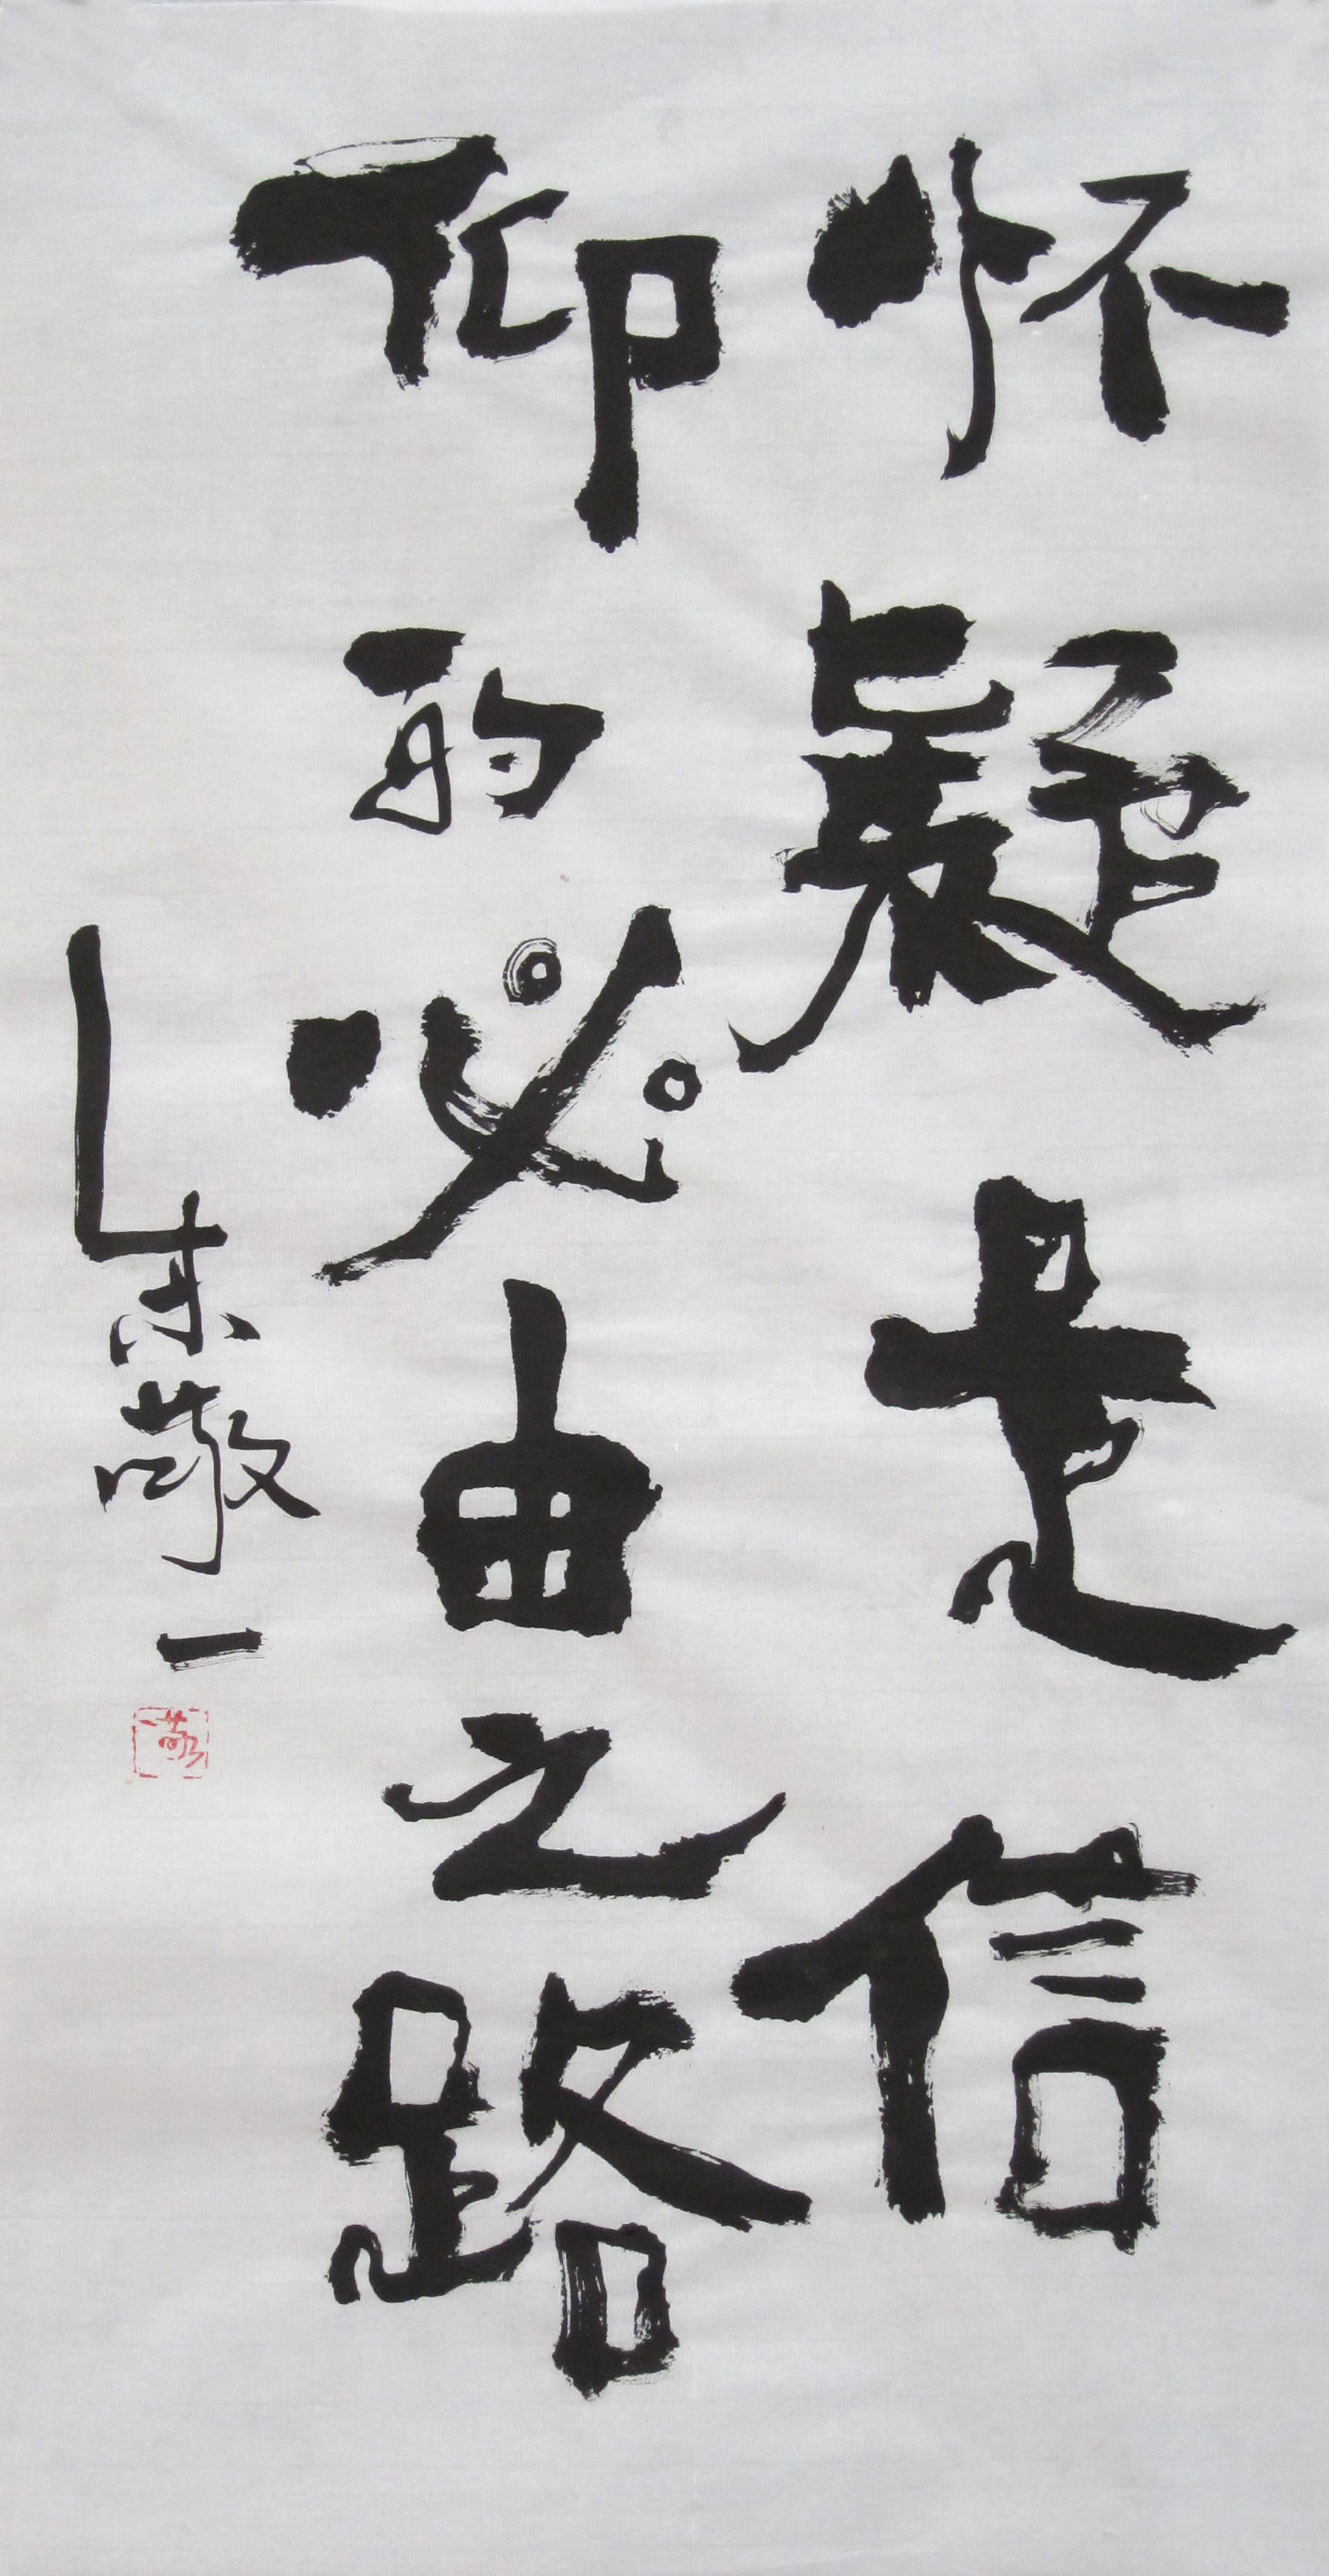 怀疑是信
仰的必由之路
朱敬一